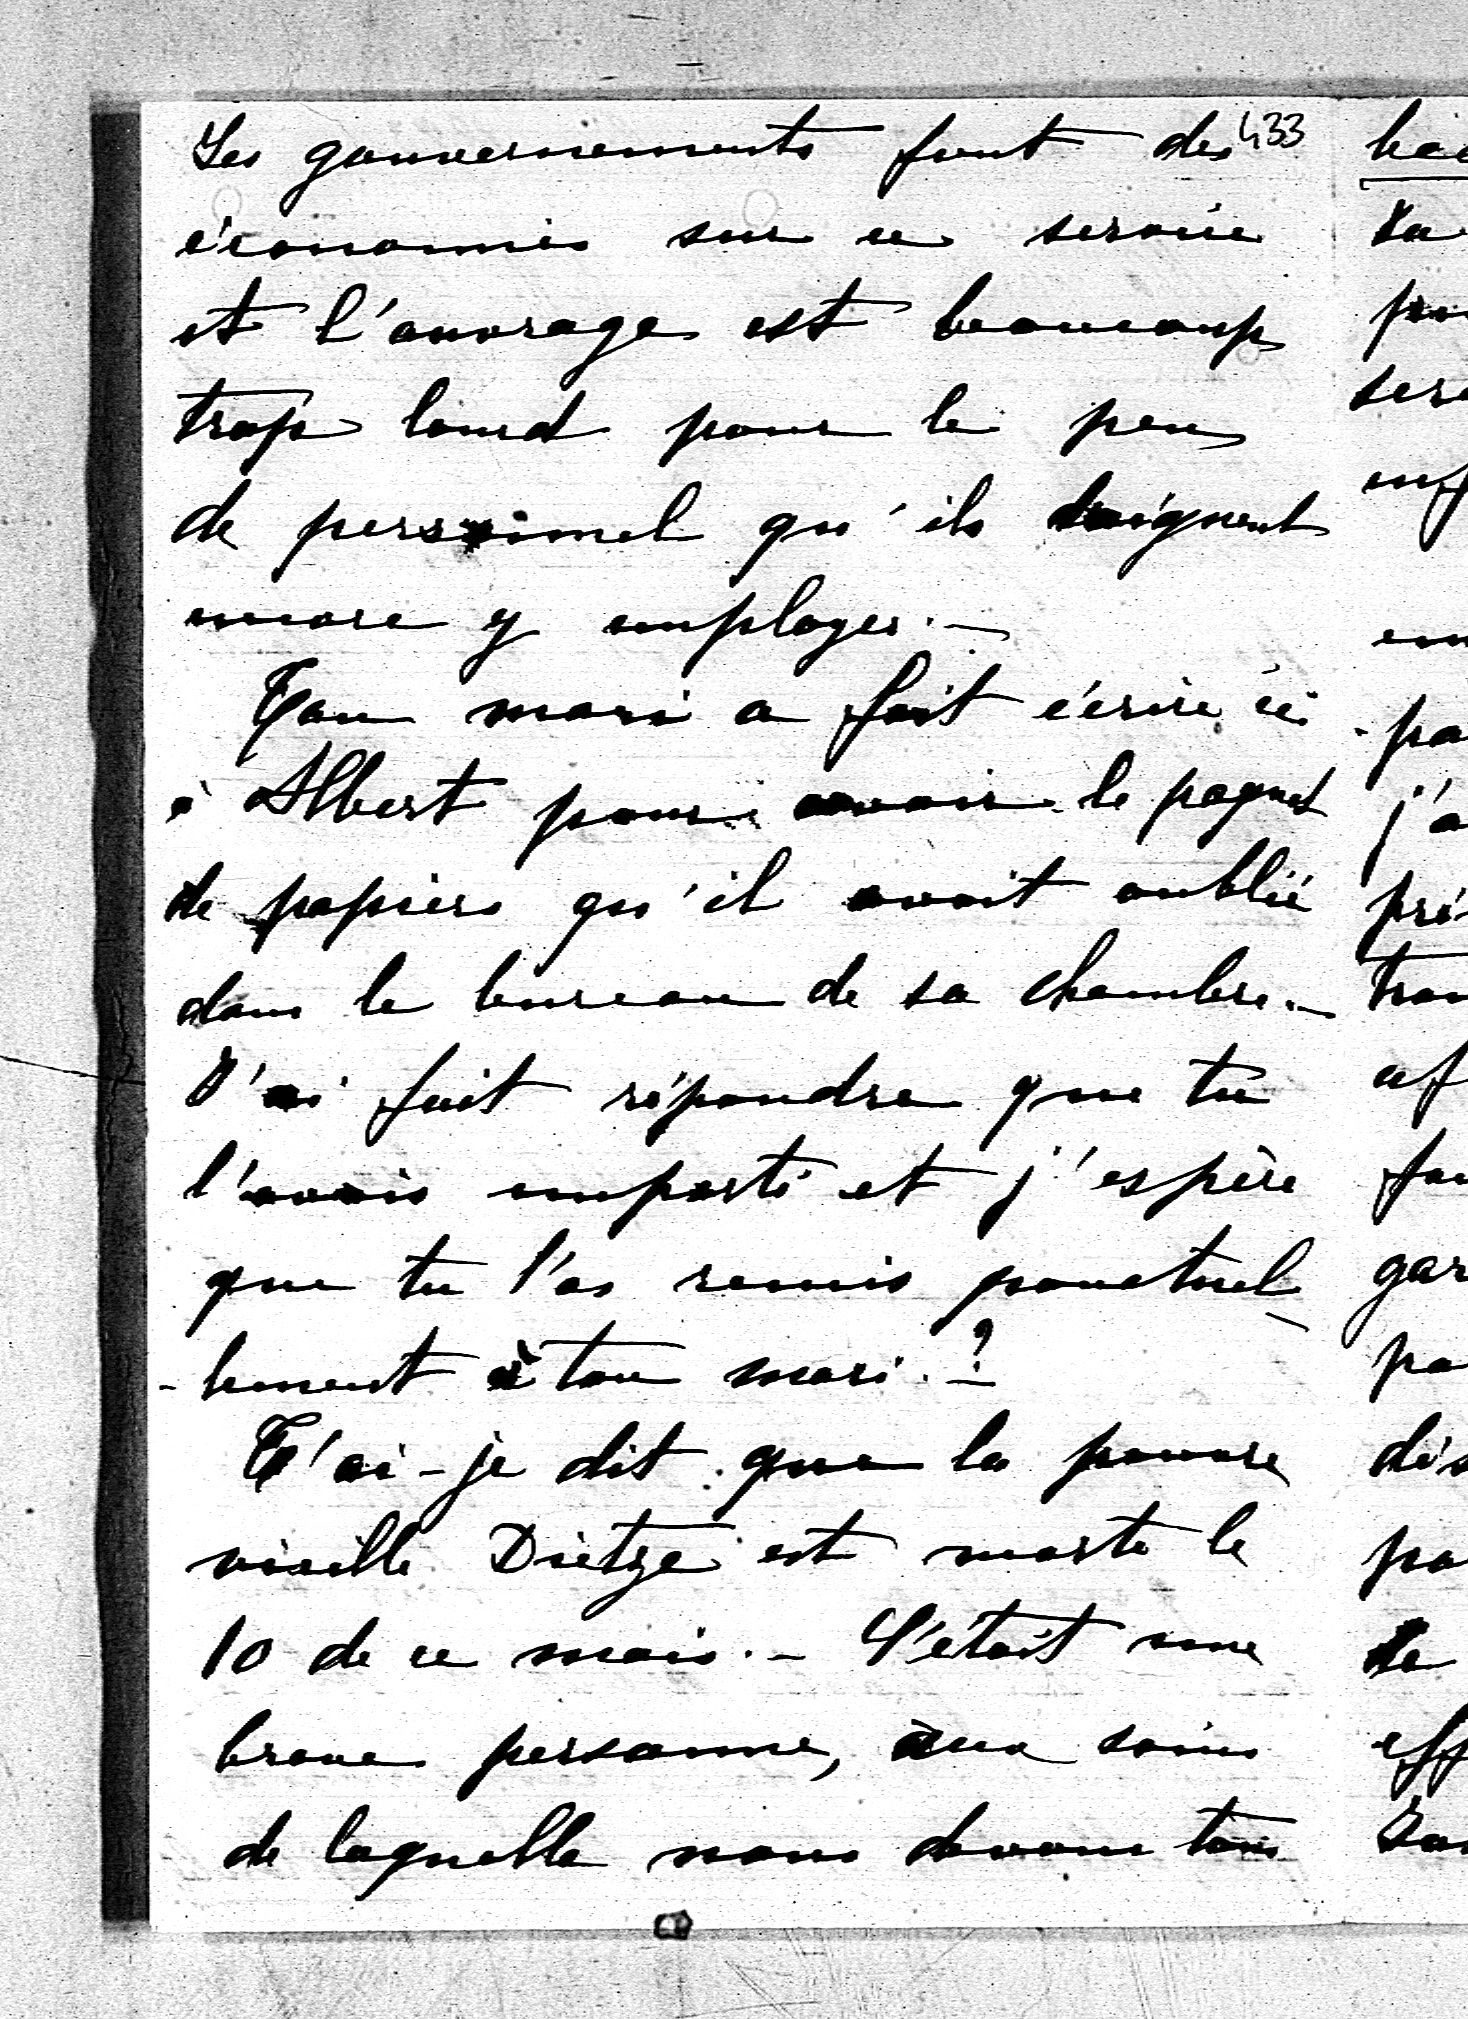 433
Les gouvernements font des
économies sur ce service
et l'ouvrage est beaucoup
trop lourd pour le peu
de personnel qu'ils daignent
encore y employer. —
Ton mari a fait écrire ici
à Albert pour avoir le paquet
de papiers qu'il avait oublié
dans le bureau de sa chambre. —
J'ai fait répondre que tu
l'avais emporté et j'espère
que tu l'as remis ponctuel
- lement à ton mari. — ?
T'ai-je dit que la pauvre
vieille Dietze est morte le
10 de ce mois. — C'était une
brave personne, aux soins
de laquelle nous devons tous